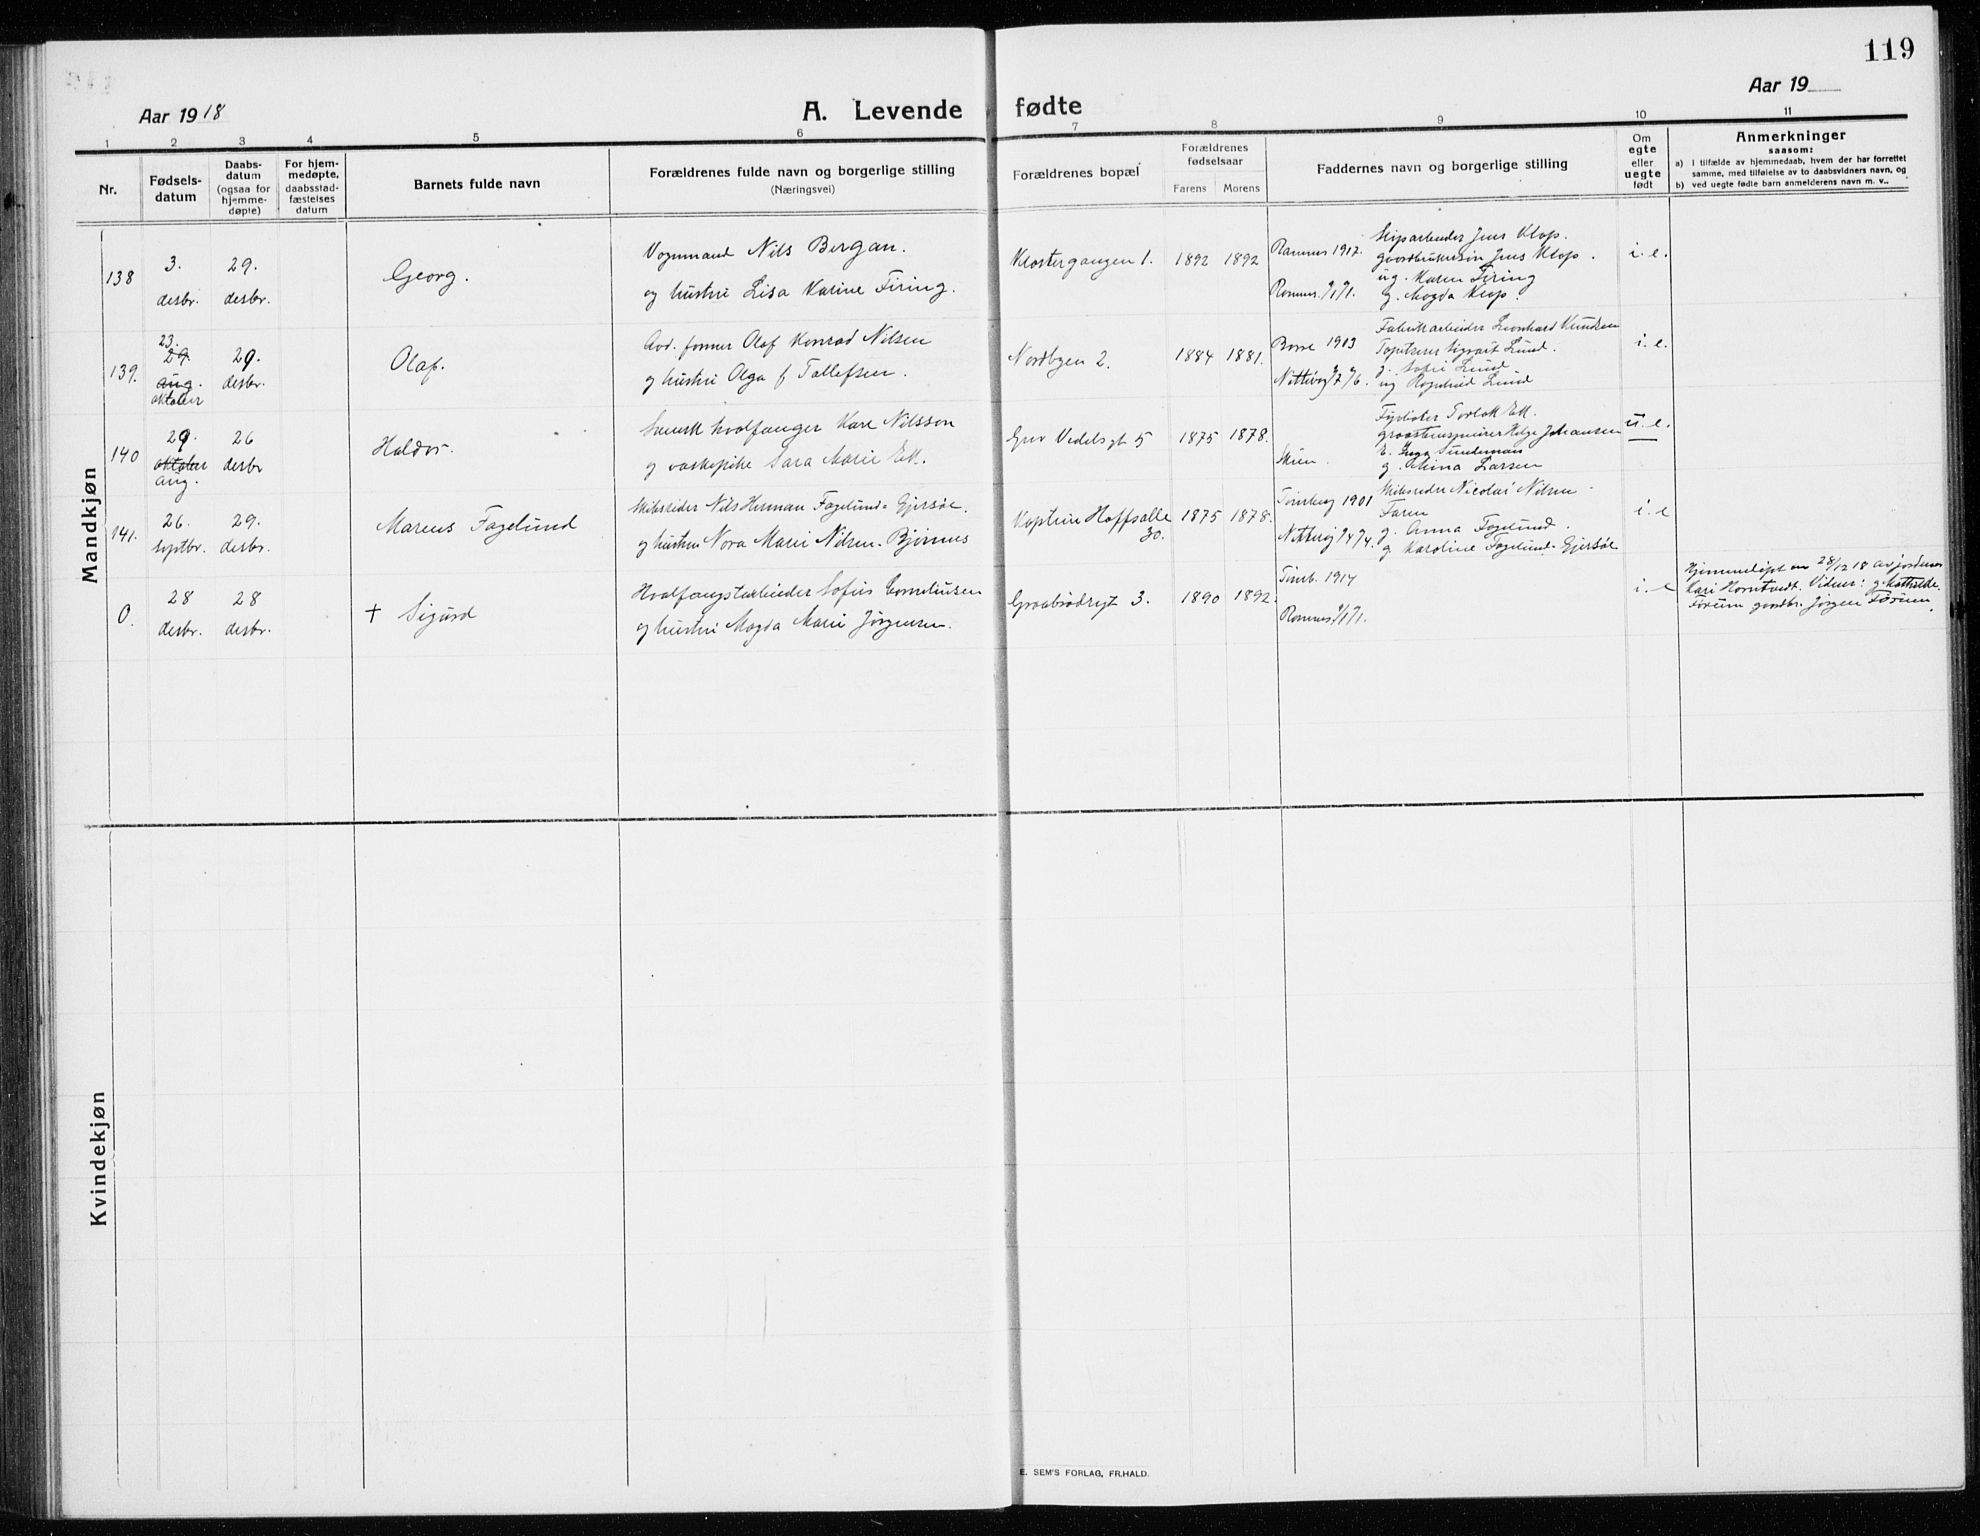 119
Aar 1918
A. Levende fødte
Aar 19
1 2 3 4 5 6 7 8 9 10 11
Nr.
Fødsels-
datum
Daabs-
datum
(ogsaa for
hjemme-
døpte)
For hjem-
medøpte,
daabsstad-
fæstelses
datum
Barnets fulde navn
Forældrenes fulde navn og borgerlige stilling
(Næringsvei)
Forældrenes bopæl
Forældrenes
fødselsaar
Farens Morens
Faddernes navn og borgerlige stilling
Om
egte
eller
uegte
født
Anmerkninger
saasom:
a) I tilfælde av hjemmedaab, hvem der har forrettet
samme, med tilføielse av to daabsvidners navn, og
b) ved uegte fødte barn anmelderens navn m. v..
Mandkjøn
138
3.
desbr.
29.
desbr.
Georg.
Vognmand Nils Bergan.
og hustru Lisa Karine Firing.
Klostergangen 1.
1892 1892
Ramnes 1912.
Ramnes 1/1 1/1.
Skipsarbeider Jens Klop.
gaardbrukersøn Jens Klop.
ug. Maren Firing
g. Magda Klop.
i. e.
139.
23.
29.
aug.
oktober
29.
desbr.
Olaf.
Avd. former Olaf Konrad Nilsen
og hustru Olga f Tollefsen.
Nordbyen 2.
1884 1881.
Borre 1913
Nøtterøy 7/7 6/6.
Fabrikarbeider Leonhard Knudsen
Tapetserer Sigvart Lund.
g. Sofie Lund
ug Ragnhild Lund
i. e.
140
29.
oktober
aug.
26
desbr
Haldor
Svensk hvalfanger Kare Nilsson
og vaskepike Sara Marie Ek.
Grev Vedelsgt 5
1875 1878.
Skien.
Fyrbøter Torlak Ek.
Helge Johansen
E. Inga Sundeman
g. Mina Larsen
u. e.
141.
26.
septbr.
29.
desbr.
Marcus Fagelund
Skibsreder Nils Herman Fagelund Gjersøe.
og hustru Nora Marie Nilsen-Bjønnes
Kaptein Hoffsalle
30.
1875 1878.
Tønsberg 1901
Nøtterøy 4/4 4/4.
Skibsreder Nicolai Nilsen
Faren
g. Anna Fagelund.
g Karoline Fagelund-Gjersøe
i. e
0.
28
desbr.
28
desbr.
+ Sigurd
Hvalfangstarbeider Sofus Corneliusen
og hustru Magda Marie Jørgensen.
Graabrødregt 3.
1890 1892.
Tønsb. 1914
Ramnes 1/1 1/1.
i. e
Hjemmedøpt den 28/12 18 av jordmor
Kari Horntvedt. Vidner: g. Mathilde
Førum gaardbr. Jørgen Førum.
Kvindekjøn
E. SEM'S FORLAG, FR.HALD.